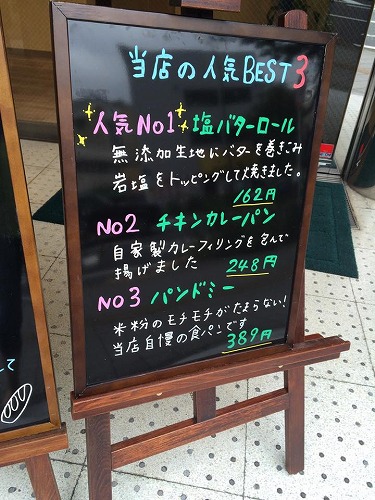 当店の人気BEST3
人気No1 塩バターロール
無添加生地にバターを巻きこみ
岩塩をトッピングして焼きました。
162円
No2 チキンカレーパン
自家製カレーフィリングを包んで
揚げました 248円
No3 パンドミー
米粉のモチモチがたまらない!
当店自慢の食パンです
389円
て